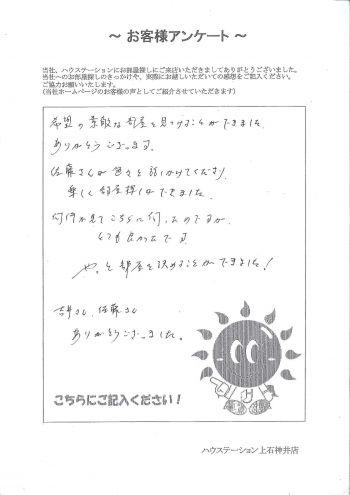 ～ お客様アンケート ～
当社、ハウステーションにお部屋探しにご来店いただきましてありがとうございました。
当社へのお部屋探しのきっかけや、実際にお越しいただいての感想をご記入ください。
ご協力お願いいたします。
(当社ホームページのお客様の声としてご紹介させていただきます)
希望の素敵な部屋を見つけることができました
ありがとうございます。
佐藤さんが色々と話しかけてくださり
楽しく部屋探しができました。
何件か見てこちらに伺ったのですが、
とても良かったです。
やっと部屋を決めることができました!
さん、佐藤さん
ありがとうございました。
こちらにご記入ください!
ハウステーション上石神井店